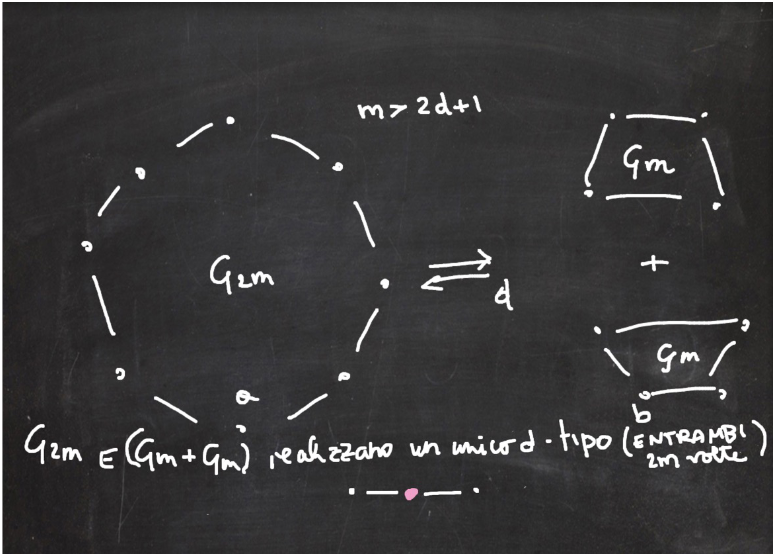 m > 2d+1
Gm
G2m
+
d
Gm
a
b
G2m E (Gm+Gm) realizzano un unico d-tipo (ENTRAMBI
2m volte)